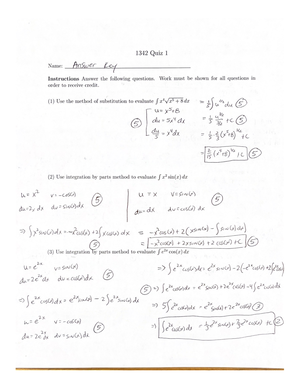 1342 Quiz 1
Name: Answer Key
Instructions Answer the following questions. Work must be shown for all questions in
order to receive credit.
(1) Use the method of substitution to evaluate ∫ x⁴√(x⁵+8) dx = 1/5 ∫ u^(1/2) du (5)
u = x⁵+8
du = 5x⁴ dx
du/5 = x⁴ dx
(5)
= 1/5 u^(3/2)/(3/2) + C (5)
= 1/5 · 2/3 (x⁵+8)^(3/2) + C
= 2/15 (x⁵+8)^(3/2) + C (5)
(2) Use integration by parts method to evaluate ∫ x² sin(x) dx
u = x² v = -cos(x) (5) u = x v = sin(x) (5)
du = 2x dx dv = sin(x) dx du = dx dv = cos(x) dx
=> ∫ x² sin(x) dx = -x² cos(x) + 2 ∫ x cos(x) dx = -x² cos(x) + 2 (x sin(x) - ∫ sin(x) dx)
(5) = -x² cos(x) + 2x sin(x) + 2 cos(x) + C (5)
(3) Use integration by parts method to evaluate ∫ e^(2x) cos(x) dx
u = e^(2x) v = sin(x) (5)
du = 2e^(2x) dx dv = cos(x) dx
=> ∫ e^(2x) cos(x) dx = e^(2x) sin(x) - 2 ∫ e^(2x) sin(x) dx
u = e^(2x) v = -cos(x) (5)
du = 2e^(2x) dx dv = sin(x) dx
=> ∫ e^(2x) cos(x) dx = e^(2x) sin(x) + 2e^(2x) cos(x) - 4 ∫ e^(2x) cos(x) dx
=> 5 ∫ e^(2x) cos(x) dx = e^(2x) sin(x) + 2e^(2x) cos(x)
=> ∫ e^(2x) cos(x) dx = 1/5 e^(2x) sin(x) + 2/5 e^(2x) cos(x) + C